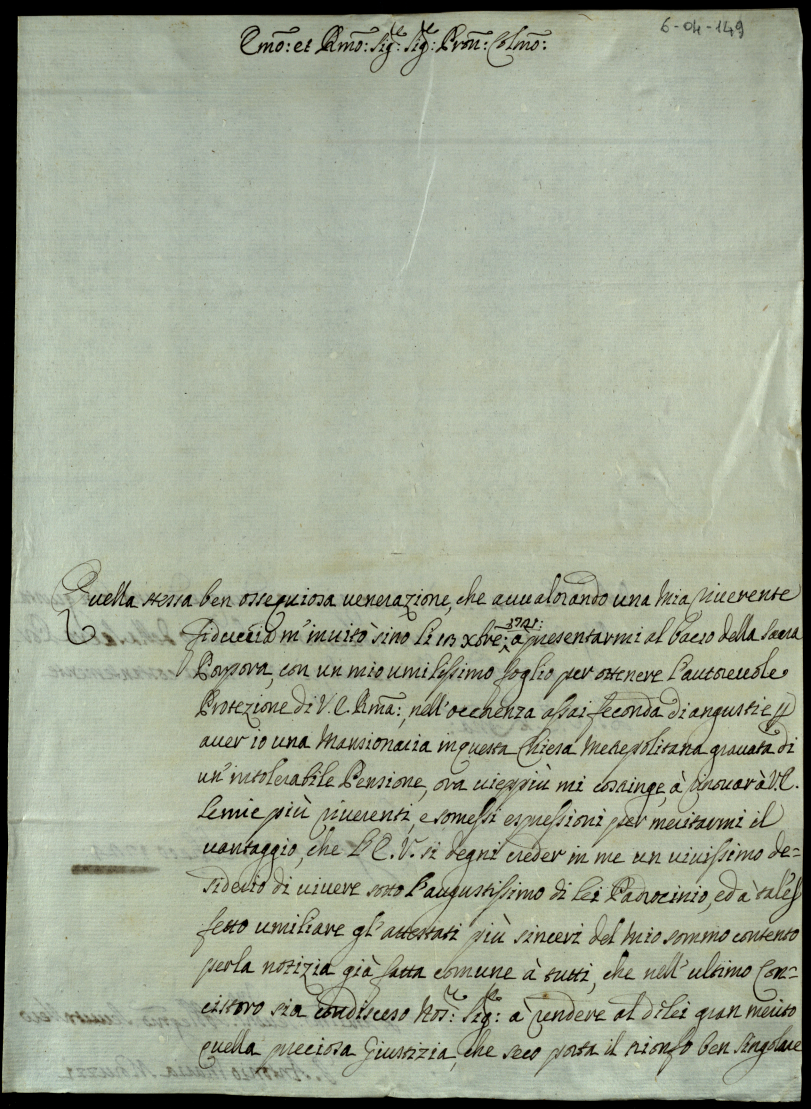 6-04-149
Emõ: et Rmõ: Sig.r Sig.r Pron: Colmõ:
Quella stessa ben ossequiosa venerazione, che avvalorando una mia riverente
fiduccia m'invitò sino li xbre, à presentarmi al bacio della Sacra
Porpora, con un mio umilissimo foglio per ottenere l'autorevole
Protezione di V. E. Rma:, nell'occorenza assai feconda di angustie p
aver io una Mansionaria in questa Chiesa Metropolitana gravata di
un'intolerabile Pensione, ora vieppiù mi costringe, à rinovar à V.E.
le mie più riverenti, e somessi espressioni per meritarmi il
vantaggio, che l'E. V. si degni creder in me un vivissimo de=
siderio di vivere sotto l'augustissimo di lei Padrocinio, ed à tal'ef
fetto umiliare gl'attestati più sinceri del mio sommo contento
per la notizia già fatta comune à tutti, che nell'ultimo Con=
cistoro sia condisceso Nos.r Sig.e: à rendere al di lei gran merito
quella preciosa Giustizia, che seco porta il trionfo ben singolare